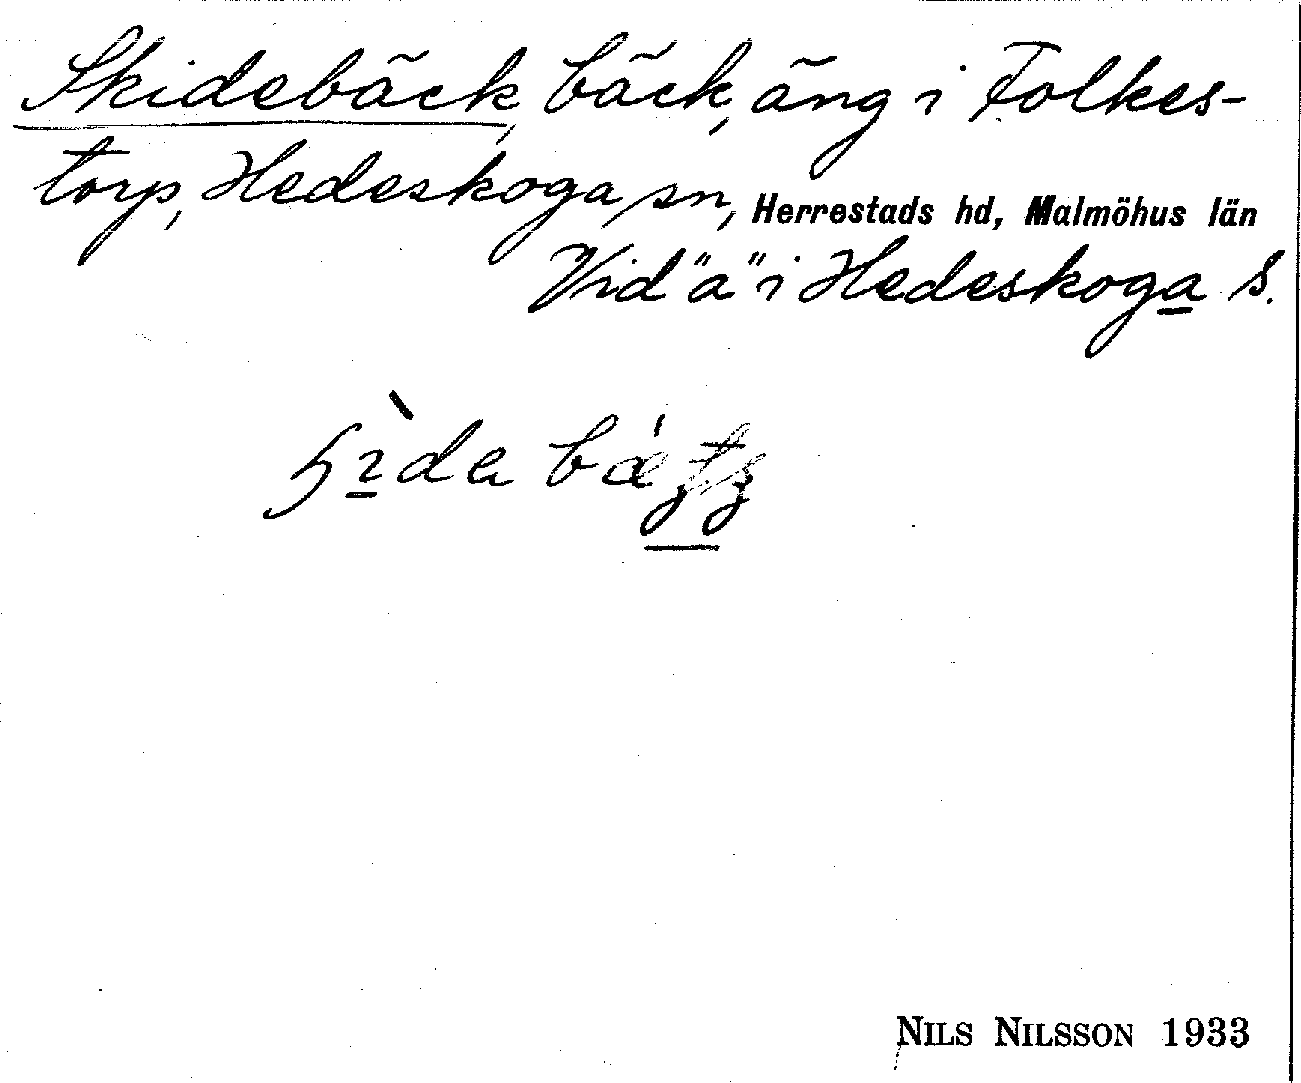 Skidebäck, bäck, äng i Folkes-
torp, Hedeskoga sn, Herrestads hd, Malmöhus län
Vid "a" i Hedeskoga S.
NILS NILSSON 1933